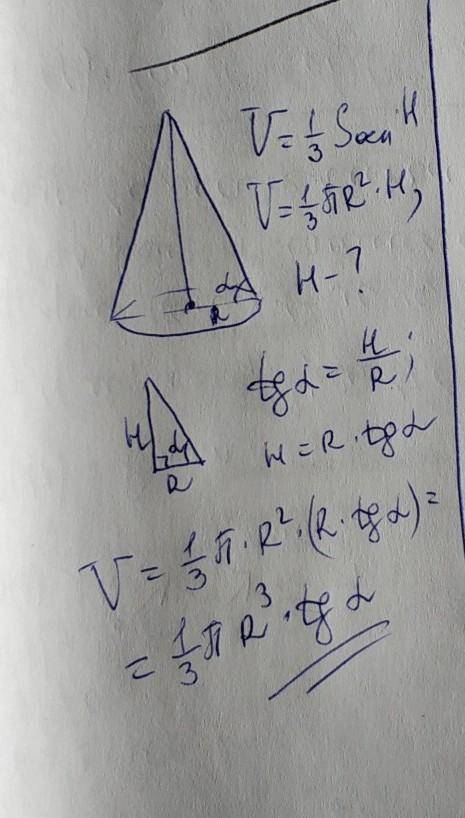 V = 1/3 Sосн H
V = 1/3 πR² · H,
H - ?
α
R
tg α = H/R;
H
α
R
H = R · tg α
V = 1/3 π · R² · (R · tg α) =
= 1/3 π R³ · tg α